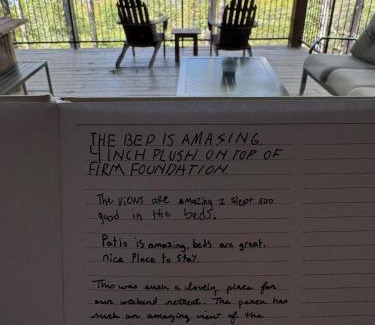 THE BED IS AMASING.
4 INCH PLUSH ON TOP OF
FIRM FOUNDATION.
The views are amazing I slept soo
good in the beds.
Patio is amazing, beds are great.
nice Place to stay.
This was such a lovely place for
our weekend retreat. The porch has
such an amazing view of the